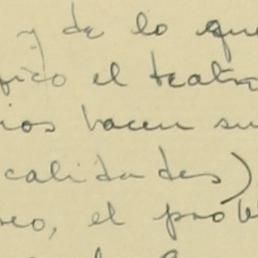 y de lo que
fico el teatro
ios hacen su
calidades)
eo, el prole